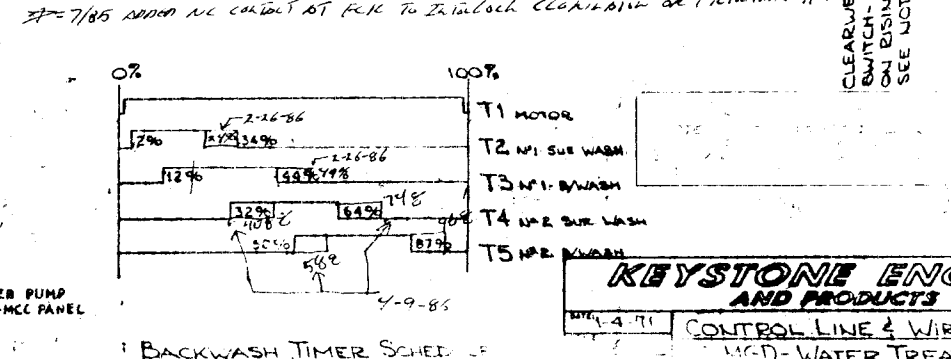 7/85 ADDED NC CONTACT AT
CLEARWE
SWITCH-
ON RISIN
SEE NOT
0% 100%
T1 MOTOR
2-26-86
2% 24% 34% T2 Nº1 SUR WASH
2-26-86
12% 44% 49% T3 Nº1 B/WASH
32% 40% 64% 74% T4 Nº2 SUR WASH
58% 87% 96% T5 Nº2 B/WASH
4-9-86
ER PUMP
MCC PANEL
BACKWASH TIMER SCHED
KEYSTONE ENG
AND PRODUCTS
DATE 1-4-71 CONTROL LINE & WIR
MGD-WATER TREA